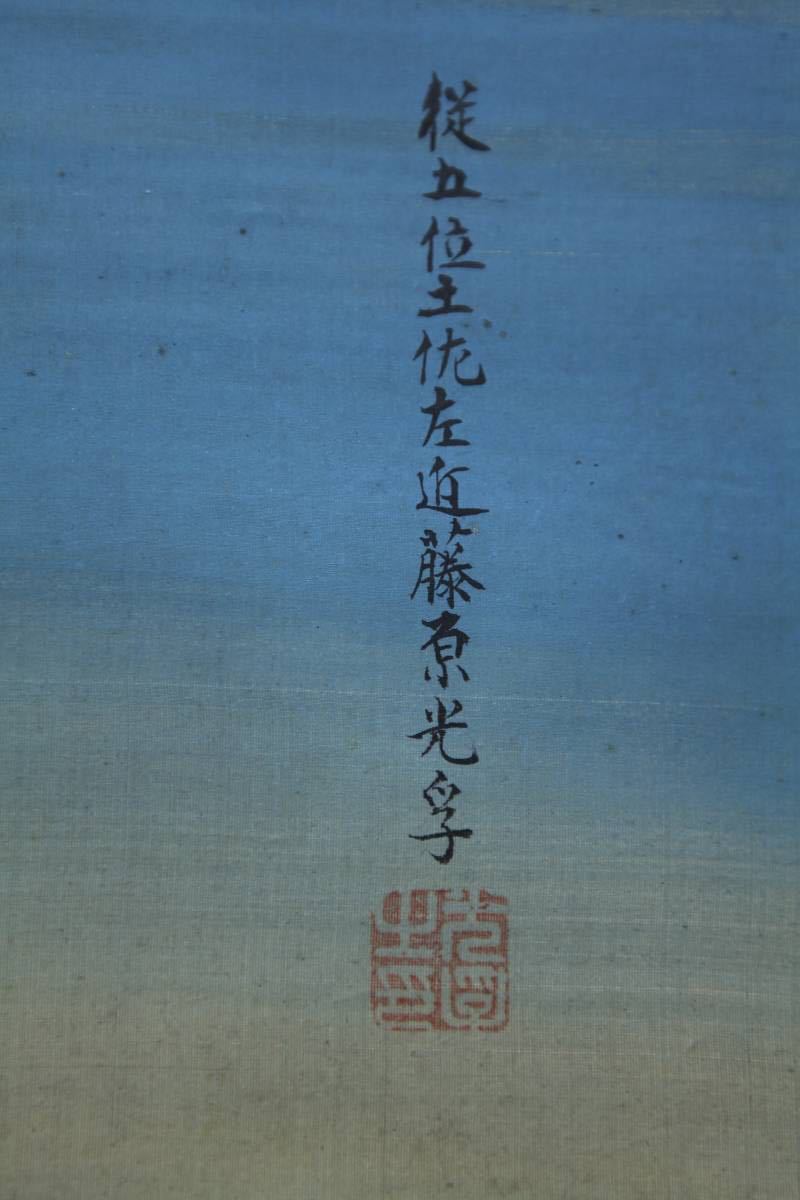 從五位土佐左近藤原光孚